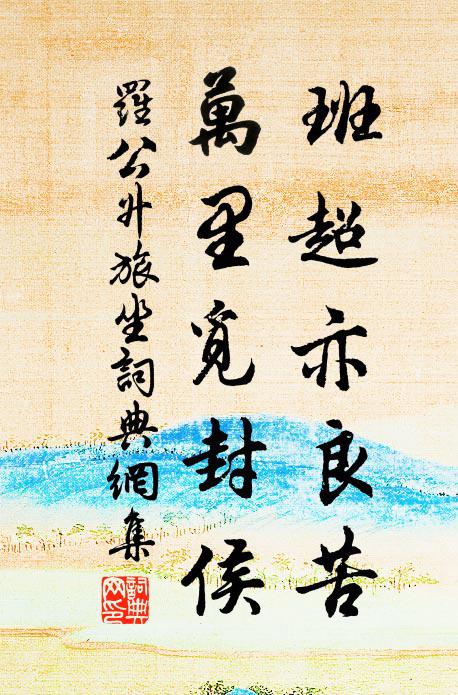 班超亦良苦
萬里覓封侯
羅公升旅坐詞典網集
詞典
网印